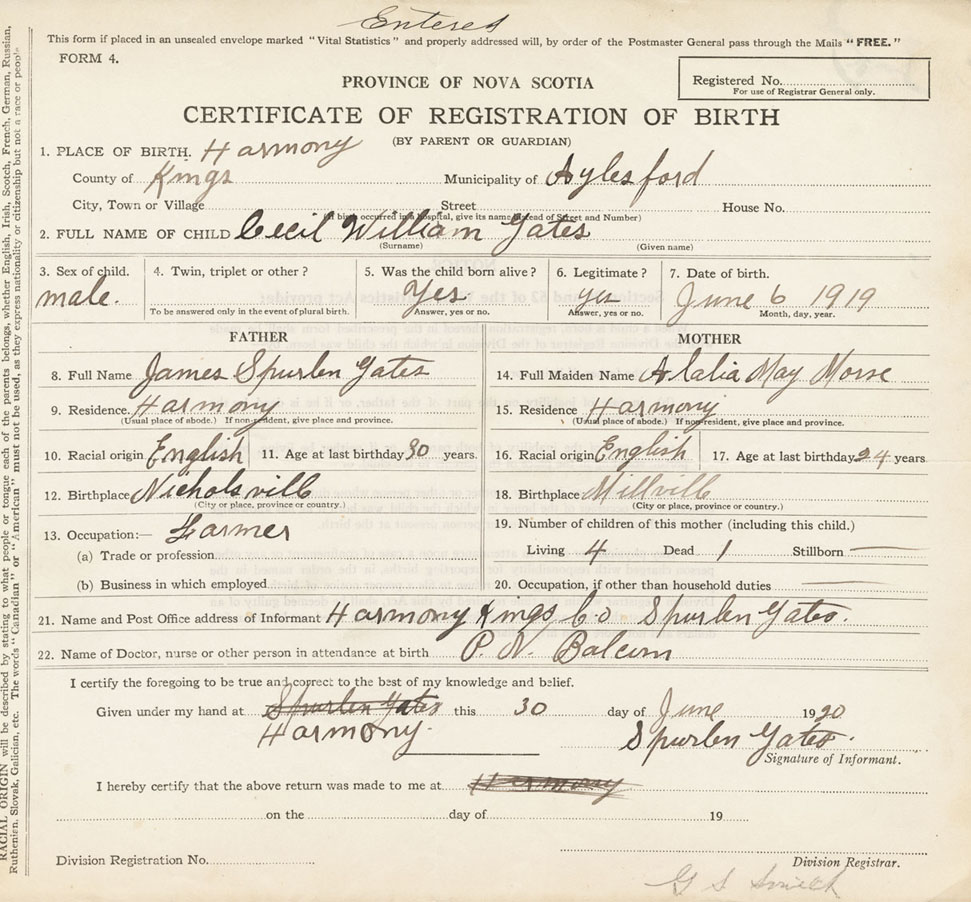 Entered
This form if placed in an unsealed envelope marked "Vital Statistics" and properly addressed will, by order of the Postmaster General pass through the Mails "FREE."
FORM 4.
PROVINCE OF NOVA SCOTIA
Registered No.
For use of Registrar General only.
CERTIFICATE OF REGISTRATION OF BIRTH
(BY PARENT OR GUARDIAN)
1. PLACE OF BIRTH. Harmony
County of Kings Municipality of Aylesford
City, Town or Village Street House No.
(If birth occurred in a hospital, give its name instead of Street and Number)
2. FULL NAME OF CHILD Cecil William Gates
(Surname) (Given name)
3. Sex of child. 4. Twin, triplet or other? 5. Was the child born alive? 6. Legitimate? 7. Date of birth.
male. Yes yes June 6 1919
To be answered only in the event of plural birth. Answer, yes or no. Answer, yes or no. Month, day, year.
FATHER MOTHER
8. Full Name James Spurlen Gates 14. Full Maiden Name Alalia May Morse
9. Residence. Harmony 15. Residence Harmony
(Usual place of abode.) If non-resident, give place and province. (Usual place of abode.) If non-resident, give place and province.
10. Racial origin English 11. Age at last birthday 30 years. 16. Racial origin English 17. Age at last birthday 24 years
12. Birthplace Nicholsville 18. Birthplace Millville
(City or place, province or country.) (City or place, province or country.)
13. Occupation:— Farmer 19. Number of children of this mother (including this child.)
(a) Trade or profession Living 4 Dead 1 Stillborn —
(b) Business in which employed 20. Occupation, if other than household duties —
21. Name and Post Office address of Informant Harmony Kings Co Spurlen Gates.
22. Name of Doctor, nurse or other person in attendance at birth P. N. Balcom
I certify the foregoing to be true and correct to the best of my knowledge and belief.
Given under my hand at Spurlen Gates this 30 day of June 1920
Harmony. Spurlen Gates.
Signature of Informant.
I hereby certify that the above return was made to me at Harmony
on the day of 19
Division Registration No. Division Registrar.
G S Smith
RACIAL ORIGIN will be described by stating to what people or tongue each of the parents belongs, whether English, Irish, Scotch, French, German, Russian,
Ruthenien, Slovak, Galician, etc. The words "Canadian" or "American" must not be used, as they express nationality or citizenship but not a race or people